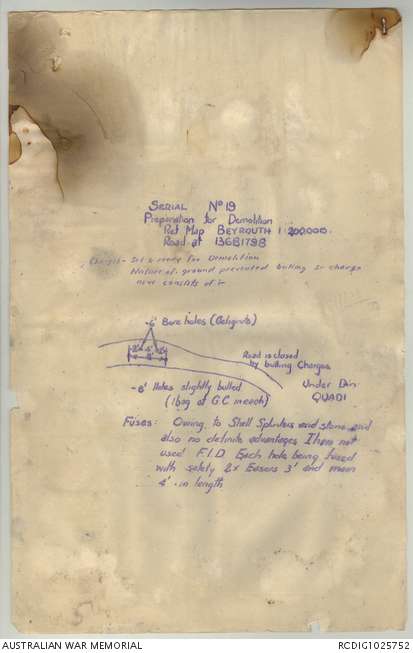 SERIAL No 19
Preparation for Demolition
Ref Map BEYROUTH 1:200,000.
Road at 136B179B
Charges - Set & ready for Demolition
Nature of ground prevented bulling so charge
now consists of :-
6' Bore holes (Gelignite)
Road is closed
by bulling Charges
Under Dein
QUADI
8' Holes slightly bulled
(1 bag of G.C in each)
Fuses: Owing to Shell Splinters and stone and
also no definite advantages I have not
used F.I.D. Each hole being fused
with safety 2x Fuses 3' and main
4' in length
AUSTRALIAN WAR MEMORIAL
RCDIG1025752